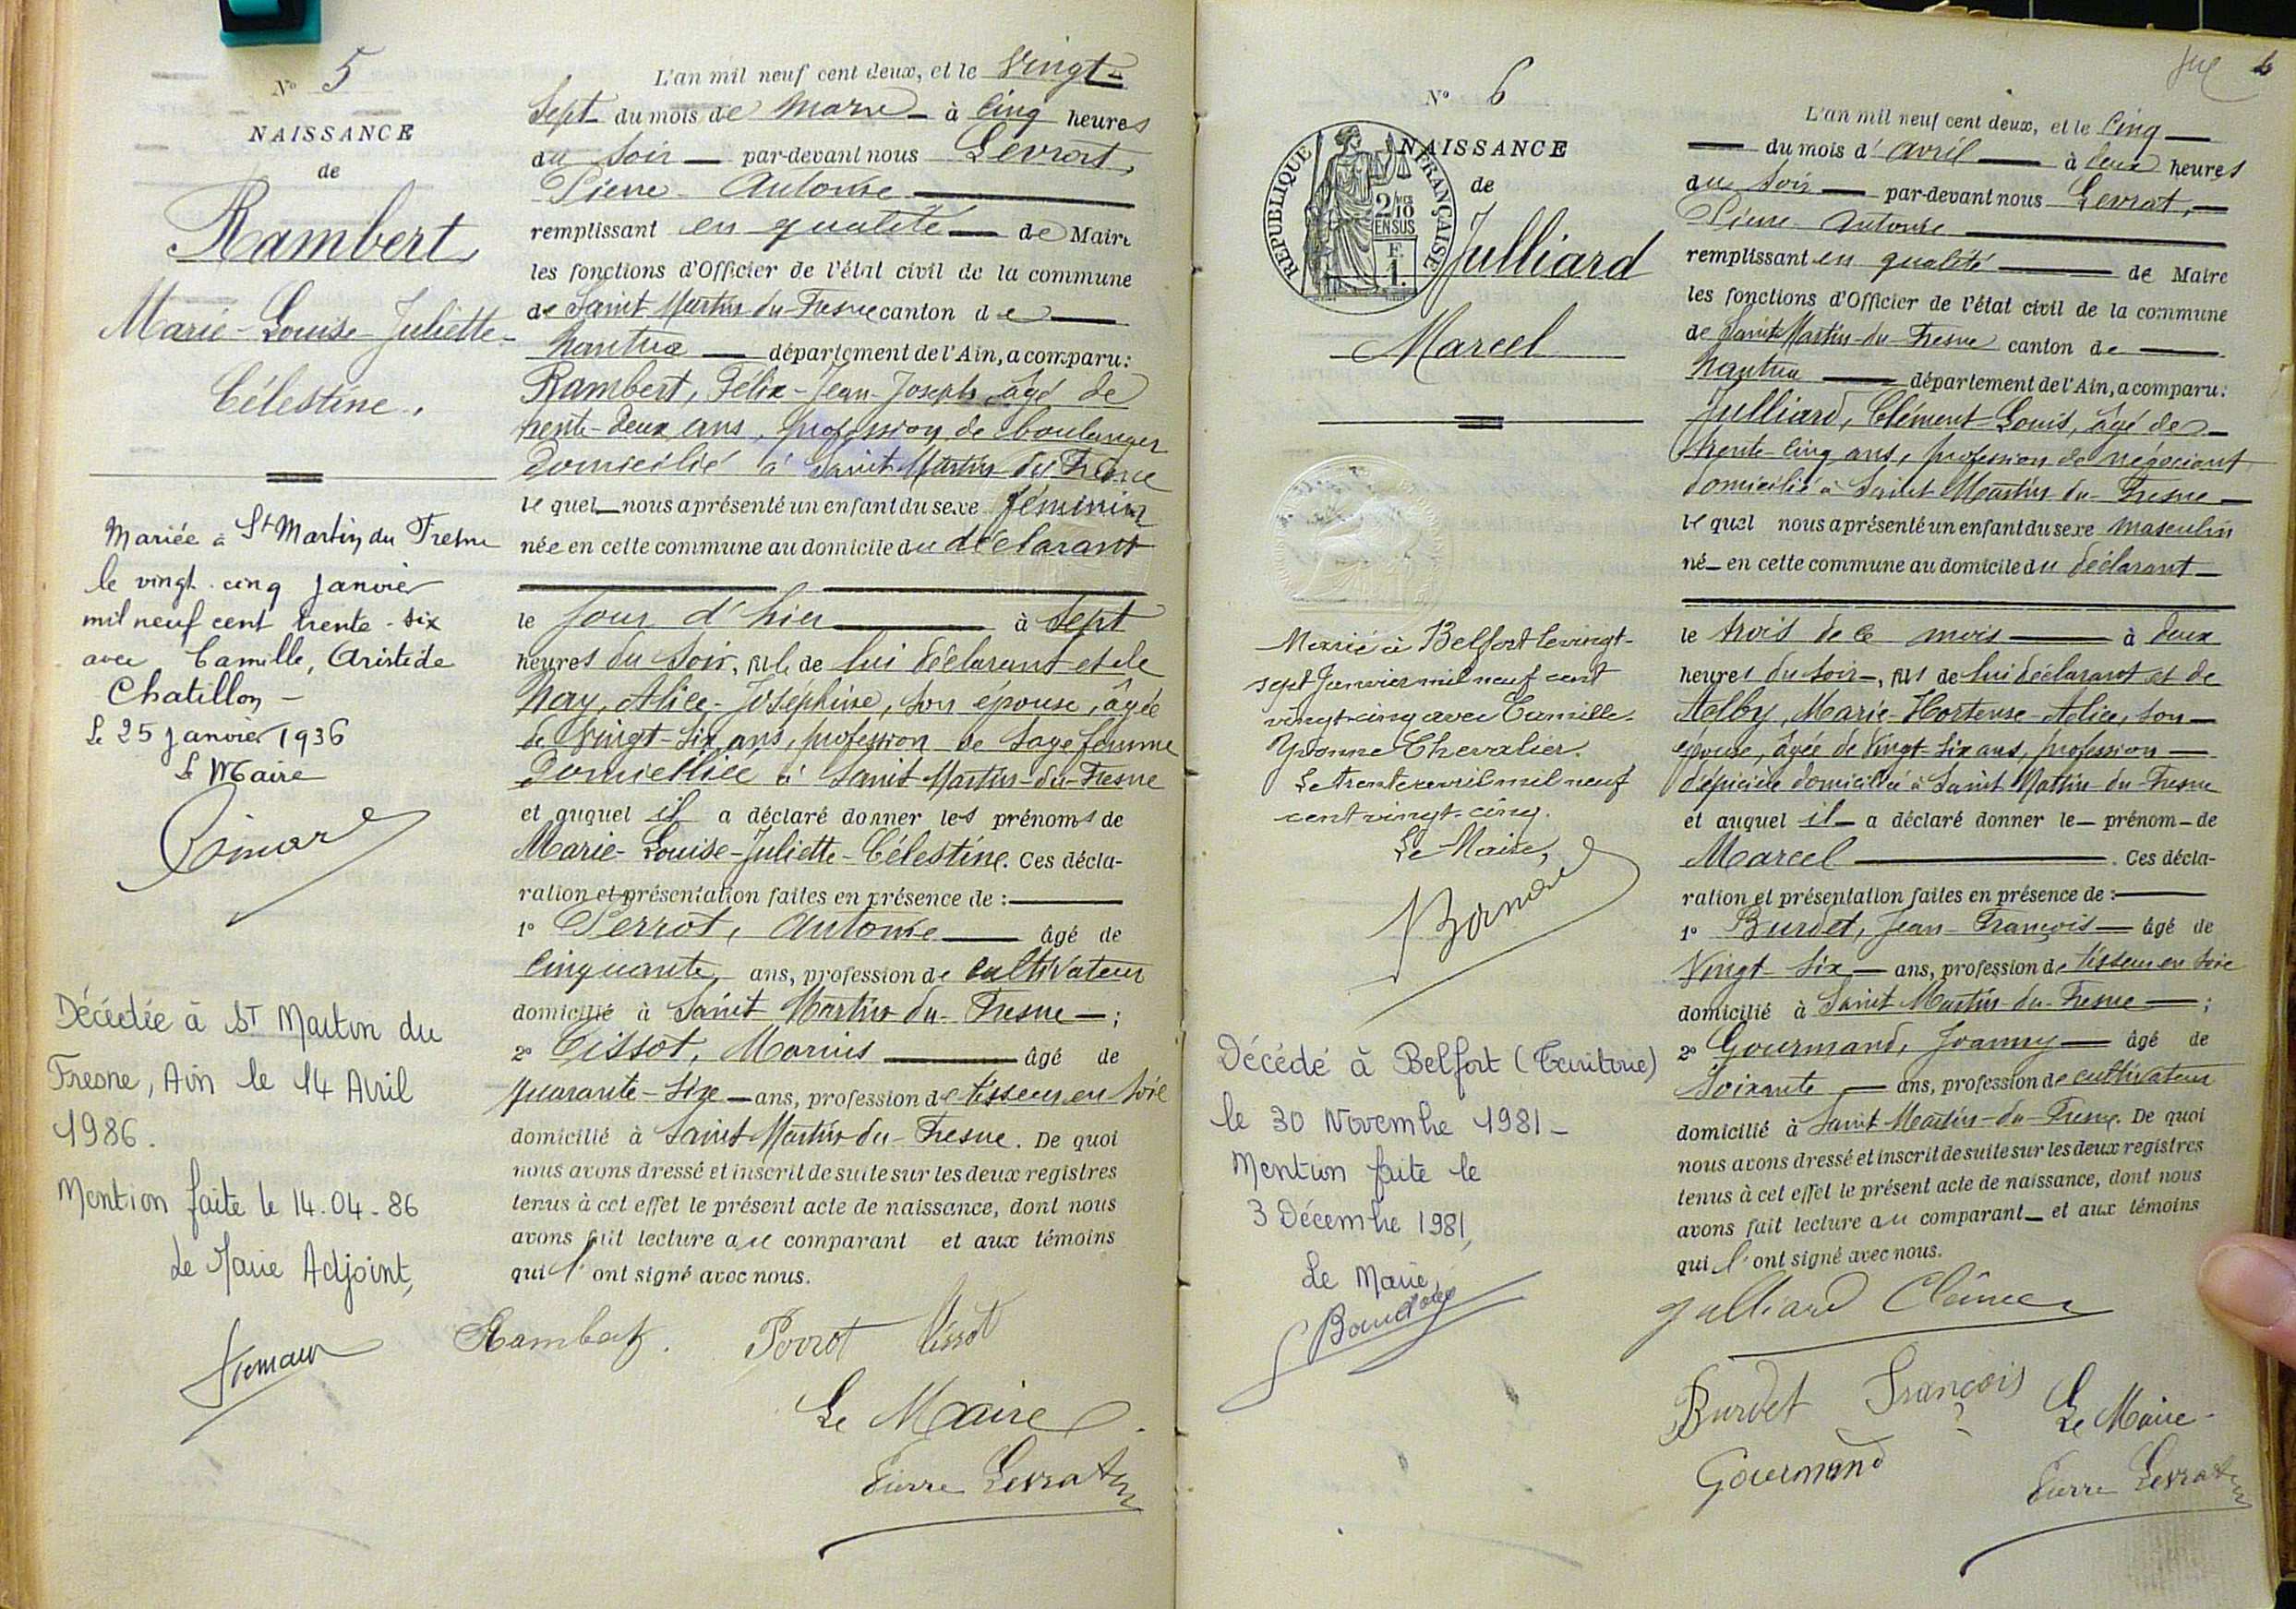 N° 5
NAISSANCE
de
Rambert
Marie-Louise-Juliette-
Célestine.
Mariée à St Martin du Fresne
le vingt-cinq janvier
mil neuf cent trente-six
avec Camille, Aristide
Chatillon -
Le 25 janvier 1936
Le Maire
Décédée à ST Martin du
Fresne, Ain le 14 Avril
1986.
Mention faite le 14.04-86
Le Maire Adjoint,
L'an mil neuf cent deux, et le Vingt-
Sept du mois de Mars à Cinq heures
du Soir par-devant nous Levrat,
Pierre-Antoine
remplissant en qualité de Maire
les fonctions d'Officier de l'état civil de la commune
de Saint Martin-du-Fresne canton de
Nantua département de l'Ain, a comparu:
Rambert, Félix-Jean-Joseph, âgé de
trente-deux ans, profession de boulanger
Domicilié à Saint-Martin-du-Fresne
lequel nous a présenté un enfant du sexe féminin
née en cette commune au domicile du déclarant
le jour d'hier à Sept
heures du Soir, fille de lui déclarant et de
Nay, Alice-Joséphine, son épouse, âgée
de Vingt-six ans, profession de sage femme
Domiciliée à Saint Martin-du-Fresne
et auquel il a déclaré donner les prénoms de
Marie-Louise-Juliette-Célestine. Ces décla-
ration et présentation faites en présence de :
1° Perrot, Antoine âgé de
Cinquante ans, profession de cultivateur
domicilié à Saint Martin-du-Fresne ;
2° Tissot, Marius âgé de
quarante-six ans, profession de tisseur en soie
domicilié à Saint-Martin-du-Fresne. De quoi
nous avons dressé et inscrit de suite sur les deux registres
tenus à cet effet le présent acte de naissance, dont nous
avons fait lecture au comparant et aux témoins
qui l'ont signé avec nous.
Rambert. Perrot Tissot
Le Maire
Pierre Levrat
N° 6
NAISSANCE
de
RÉPUBLIQUE FRANÇAISE
2/10 MES
EN SUS
F.
1.
Julliard
Marcel
Marié à Belfort le vingt-
sept Janvier mil neuf cent
vingt-cinq avec Camille
Yvonne Chevalier.
Le trente avril mil neuf
cent vingt-cinq.
Le Maire,
Décédé à Belfort (Territoire)
le 30 Novembre 1981-
Mention faite le
3 Décembre 1981,
Le Maire,
L'an mil neuf cent deux, et le Cinq
du mois d'avril à deux heures
du Soir par-devant nous Levrat,
Pierre-Antoine
remplissant en qualité de Maire
les fonctions d'Officier de l'état civil de la commune
de Saint-Martin-du-Fresne canton de
Nantua département de l'Ain, a comparu:
Julliard, Clément-Louis, âgé de
trente-cinq ans, profession de négociant
domicilié à Saint-Martin-du-Fresne
lequel nous a présenté un enfant du sexe masculin
né en cette commune au domicile du déclarant
le trois de ce mois à deux
heures du soir, fils de lui déclarant et de
Marie-Hortense-Alice, son
épouse, âgée de vingt-six ans, profession
d'épicière domiciliée à Saint-Martin-du-Fresne
et auquel il a déclaré donner le prénom de
Marcel . Ces décla-
ration et présentation faites en présence de :
1° Burdet, Jean-François âgé de
Vingt-six ans, profession de tisseur en soie
domicilié à Saint-Martin-du-Fresne ;
2° Gourmand, Joanny âgé de
Soixante ans, profession de cultivateur
domicilié à Saint-Martin-du-Fresne. De quoi
nous avons dressé et inscrit de suite sur les deux registres
tenus à cet effet le présent acte de naissance, dont nous
avons fait lecture au comparant et aux témoins
qui l'ont signé avec nous.
Julliard Clément
Burdet François
Gourmand
Le Maire
Pierre Levrat